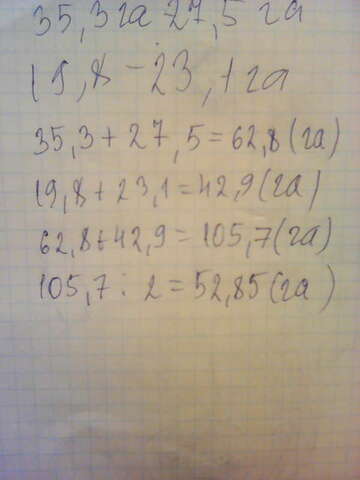 35,3 га 27,5 га
19,8 - 23,1 га
35,3 + 27,5 = 62,8 (га)
19,8 + 23,1 = 42,9 (га)
62,8 + 42,9 = 105,7 (га)
105,7 : 2 = 52,85 (га)